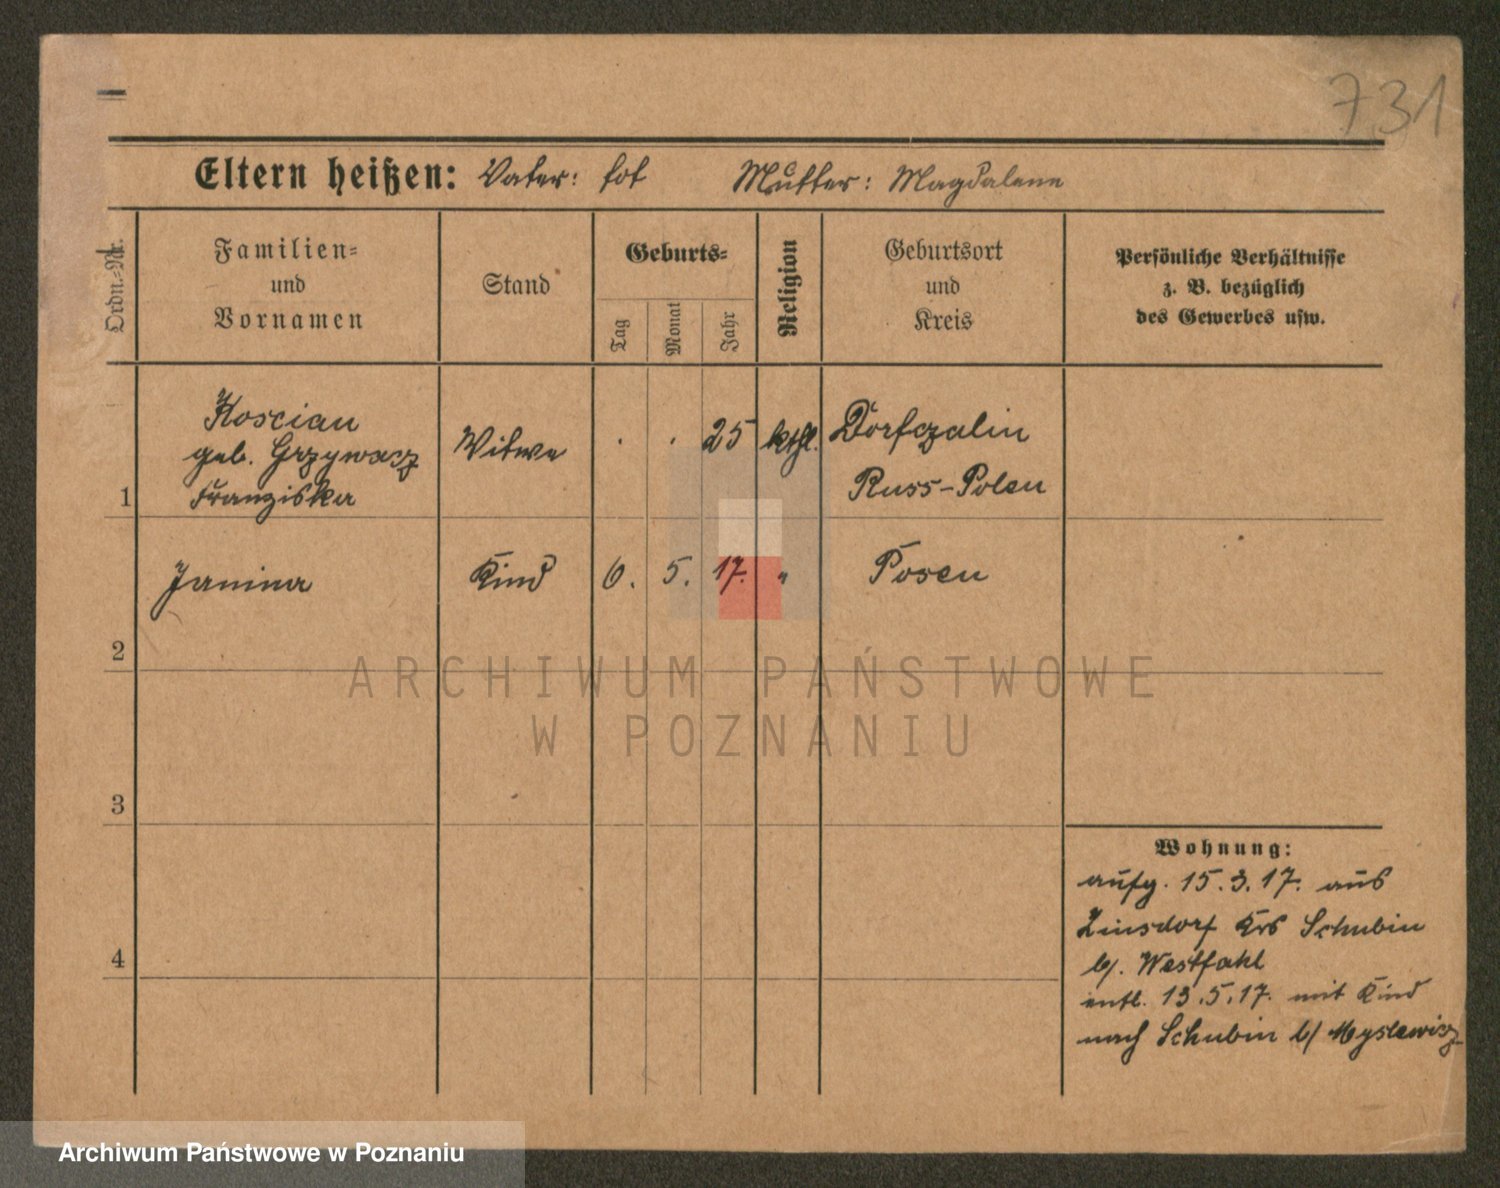 731
Eltern heißen: Vater: tot Mutter: Magdalene
Ordn.-Nr.
Familien-
und
Vornamen
Stand
Geburts-
Tag
Monat
Jahr
Religion
Geburtsort
und
Kreis
Persönliche Verhältnisse
z. B. bezüglich
des Gewerbes usw.
1
Koscian
geb. Grzywacz
Franziska
Witwe
. . 25
kthl.
Dorfczalin
Russ-Polen
2
Janina
Kind
6. 5. 17.
"
Posen
3
4
Wohnung:
aufg. 15.3.17. aus
Zinsdorf Krs Schubin
b/. Westfahl
entl. 13.5.17. mit Kind
nach Schubin b/ Myslewicz
ARCHIWUM PAŃSTWOWE
W POZNANIU
Archiwum Państwowe w Poznaniu